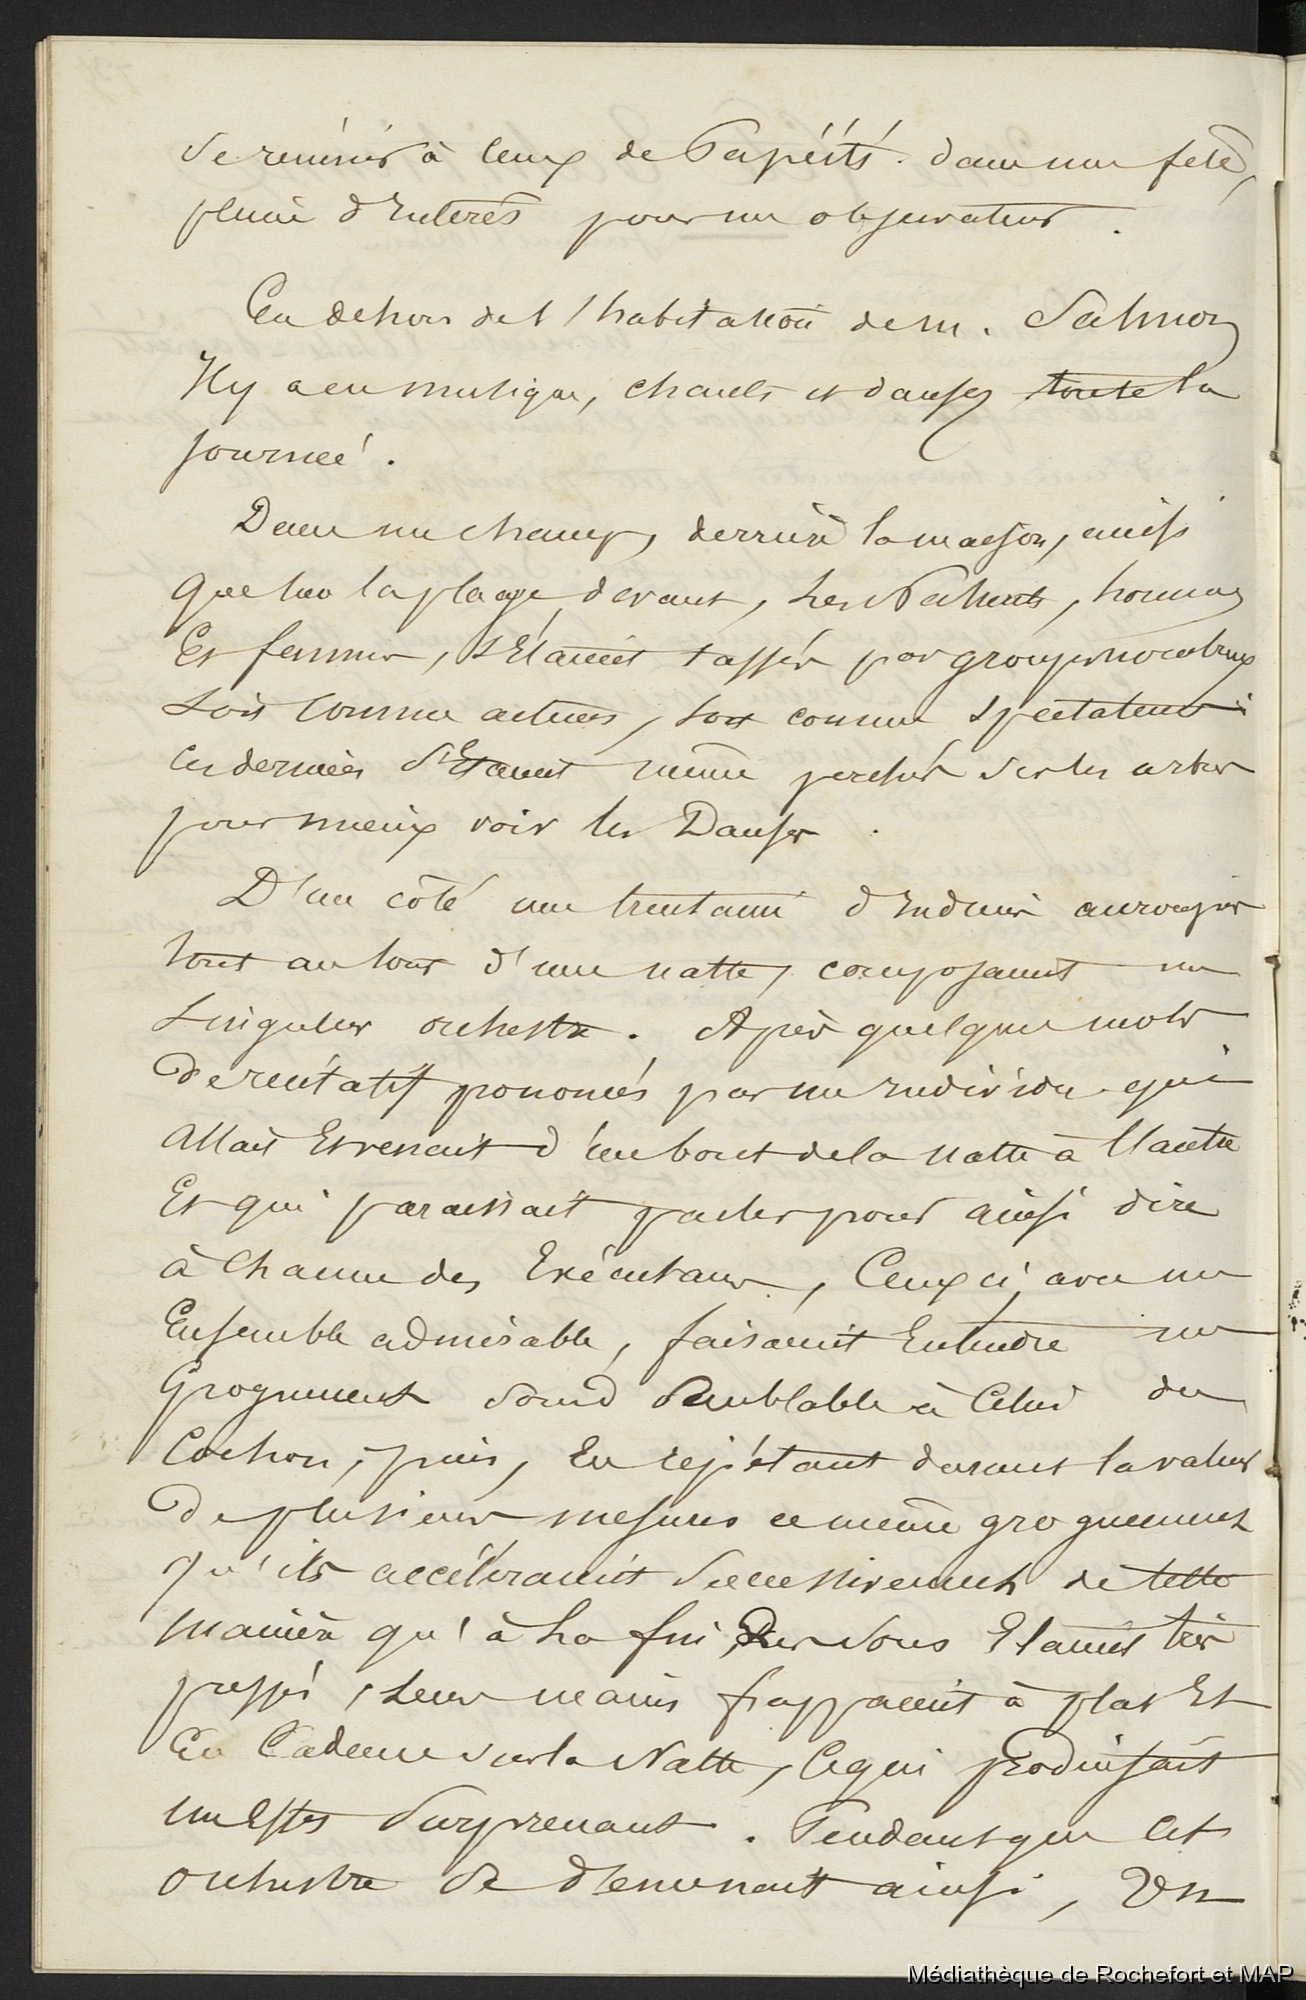 se réunir à ceux de Papéiti. dans une fête,
pleine d'Interes pour un observateur.
En dehors de l'habitation de m. Salmon
Il y a eu musique, chants et danses toute la
journeé.
Dans un champ, derrière la maison, ainsi
que sur la plage, devant, les Naturels, hommes
Et femmes, s'Etaient tassés par groupes nombreux
soit comme acteurs, soit comme spectateurs ;
ces derniers s'Etaient même perchés sur les arbres
pour mieux voir les Danses.
D'un côté une trentaine d'Indiens accroupis
tout autour d'une natte, composaient un
singulier orchestre. Après quelques mots
de récitatif prononcés par un individu qui
allait Et venait d'un bout de la natte à l'autre
Et qui paraissait parler pour ainsi dire
à Chacun des Exécutans, Ceux ci, avec un
Ensemble admirable, faisaient Entendre un
Grognement sourd semblable à Celui du
Cochon, puis, En répétant durant la valeur
De plusieurs mesures ce même grognement
qu'ils accéléraient successivement de telle
manière qu'à la fin Les sons Etaient très
pressés, Leurs mains frappaient à plat Et
En Cadence sur la Natte, Ce qui produisait
un Effet surprenant. Pendant que Cet
orchestre se démenait ainsi, Un
Médiathèque de Rochefort et MAP